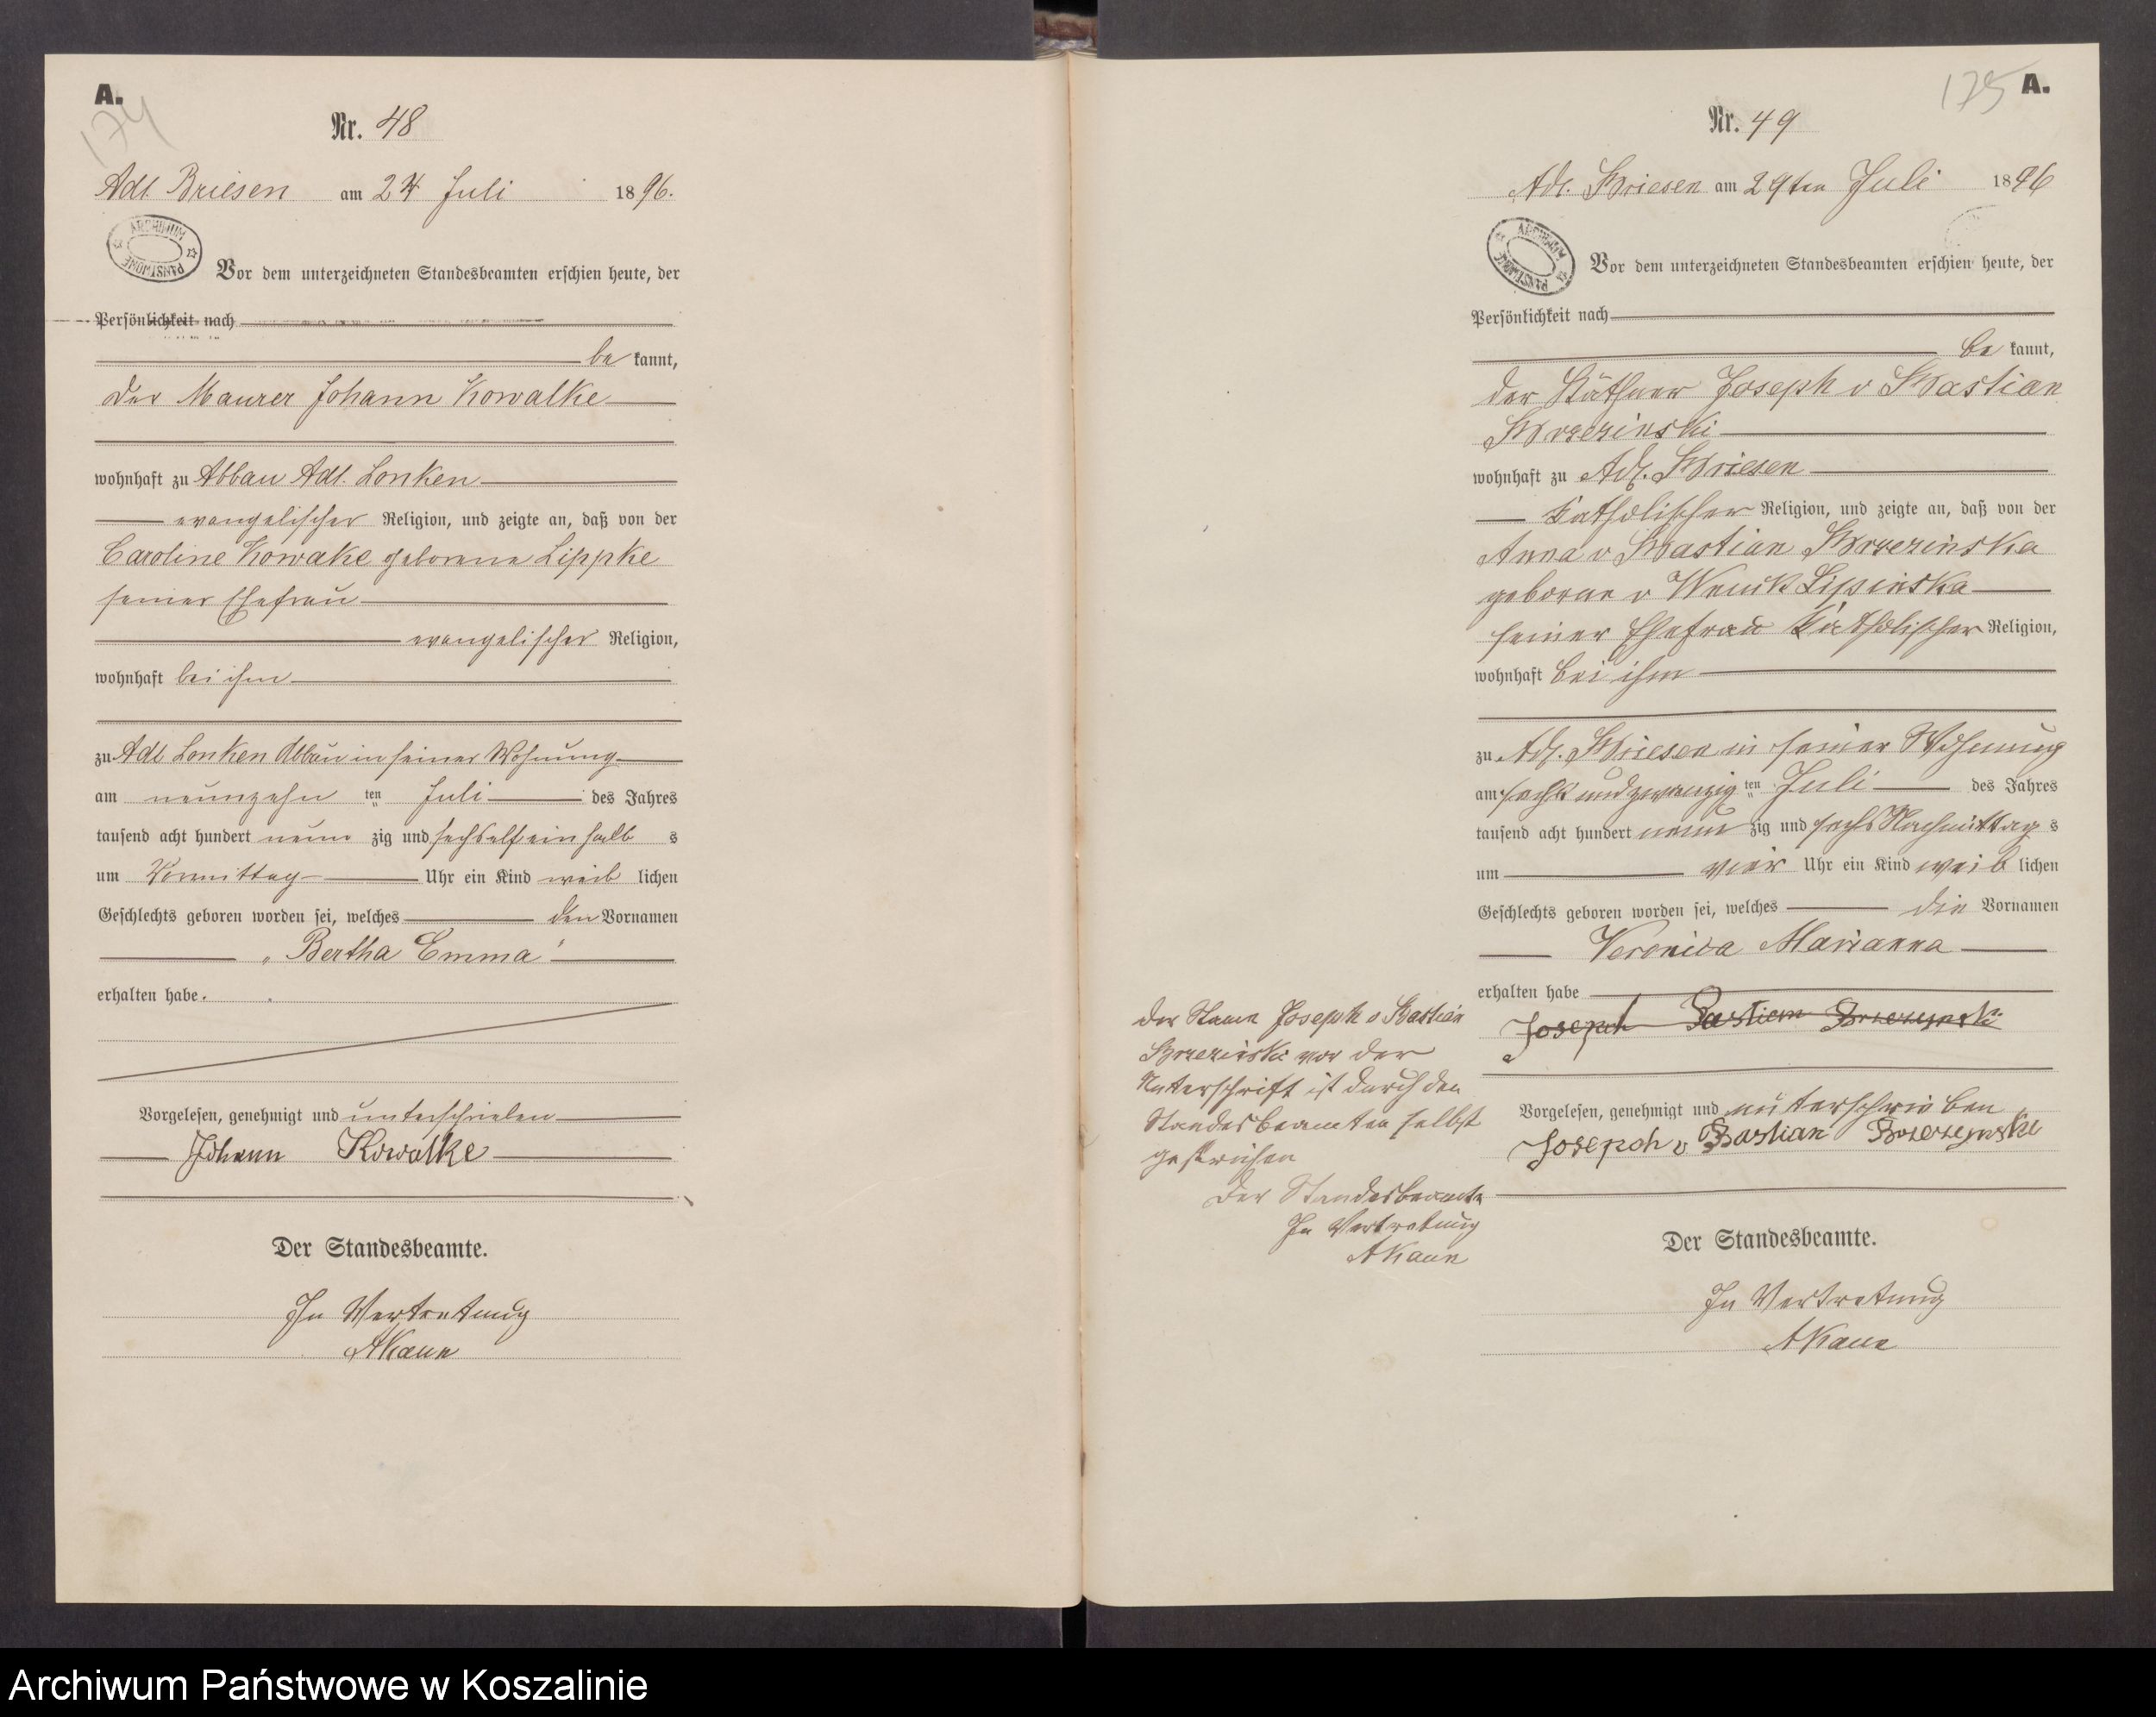 A.
174
Nr. 48
Adl. Briesen am 24 Juli 1896.
ARCHIWUM PAŃSTWOWE
Vor dem unterzeichneten Standesbeamten erschien heute, der
Persönlichkeit nach
be kannt,
der Maurer Johann Kowalke
wohnhaft zu Abbau Adl. Lonken
evangelischer Religion, und zeigte an, daß von der
Caroline Kowake geborene Lippke
seiner Ehefrau
evangelischer Religion,
wohnhaft bei ihm
zu Adl Lonken Abbau in seiner Wohnung
am neunzehn ten Juli des Jahres
tausend acht hundert neun zig und sechs elf ein halb s
um Vormittag Uhr ein Kind weib lichen
Geschlechts geboren worden sei, welches den Vornamen
„Bertha Emma"
erhalten habe.
Vorgelesen, genehmigt und unterschrieben
Johann Kowalke
Der Standesbeamte.
In Vertretung
AKaun
175
A.
Nr. 49
Adl. Briesen am 29ten Juli 1896
ARCHIWUM PAŃSTWOWE
Vor dem unterzeichneten Standesbeamten erschien heute, der
Persönlichkeit nach
be kannt,
der Käthner Joseph v Bastian
Brzezinski
wohnhaft zu Adl. Briesen
katholischer Religion, und zeigte an, daß von der
Anna v Bastian Brzezinska
geborne v Wenck Lipinska
seiner Ehefrau katholischer Religion,
wohnhaft bei ihm
zu Adl. Briesen in seiner Wohnung
am sechs und zwanzig ten Juli des Jahres
tausend acht hundert neun zig und sechs Nachmittag s
um vier Uhr ein Kind weib lichen
Geschlechts geboren worden sei, welches die Vornamen
Veronica Marianna
erhalten habe
Joseph Bastian Brzezynski
Vorgelesen, genehmigt und unterschrieben
Joseph v Bastian Brzezynski
Der Standesbeamte.
In Vertretung
AKaun
der Name Joseph v Bastian
Brzezinski vor der
Unterschrift ist durch den
Standesbeamten selbst
gestrichen
Der Standesbeamte
In Vertretung
AKaun
Archiwum Państwowe w Koszalinie